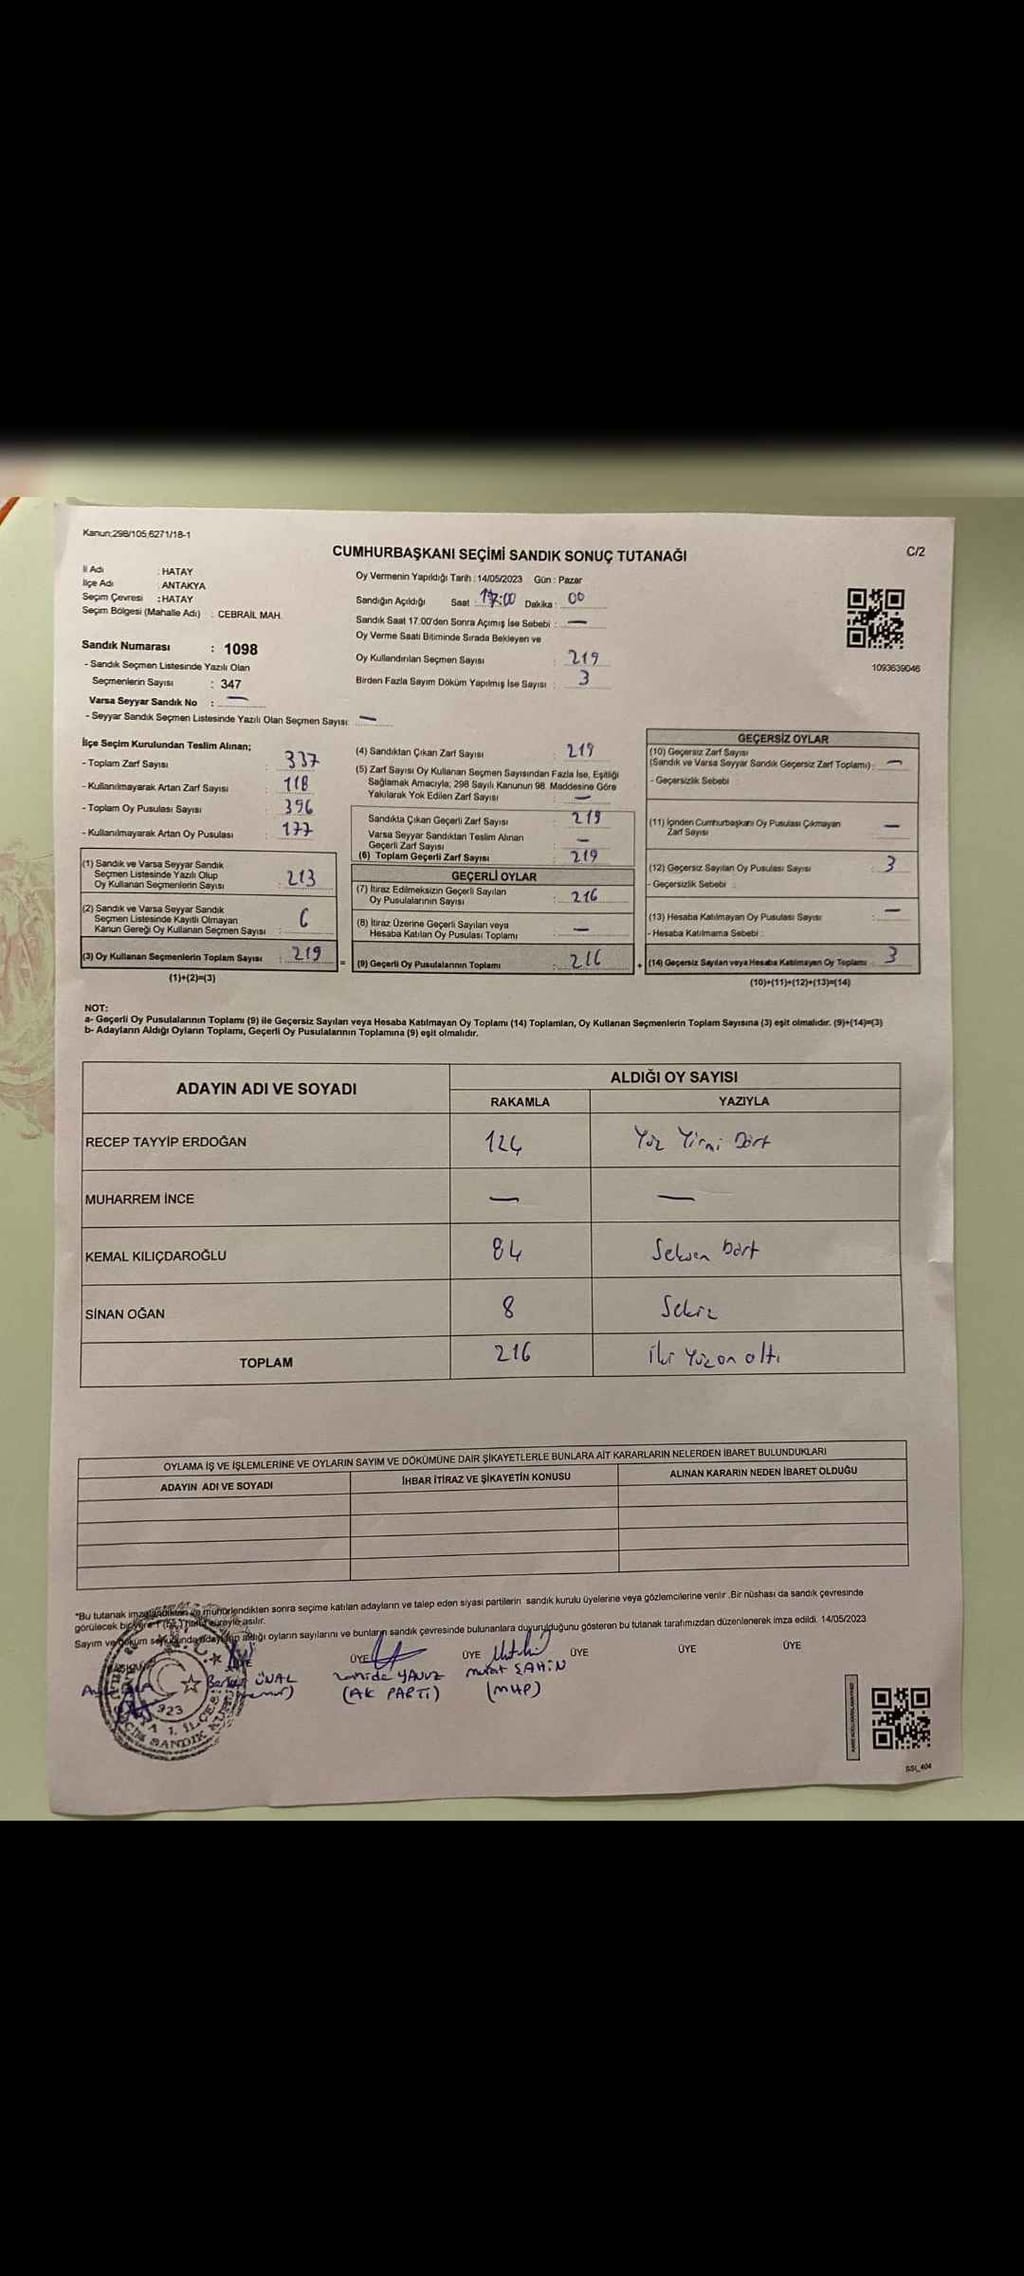 Kanun:298/105,6271/18-1
CUMHURBAŞKANI SEÇİMİ SANDIK SONUÇ TUTANAĞI
C/2
İl Adı : HATAY
İlçe Adı : ANTAKYA
Seçim Çevresi : HATAY
Seçim Bölgesi (Mahalle Adı) : CEBRAİL MAH.
Sandık Numarası : 1098
- Sandık Seçmen Listesinde Yazılı Olan
Seçmenlerin Sayısı : 347
Varsa Seyyar Sandık No : —
- Seyyar Sandık Seçmen Listesinde Yazılı Olan Seçmen Sayısı: —
Oy Vermenin Yapıldığı Tarih : 14/05/2023 Gün : Pazar
Sandığın Açıldığı Saat : 17:00 Dakika : 00
Sandık Saat 17:00'den Sonra Açımış İse Sebebi : —
Oy Verme Saati Bitiminde Sırada Bekleyen ve
Oy Kullandırılan Seçmen Sayısı : 219
Birden Fazla Sayım Döküm Yapılmış İse Sayısı : 3
1093639046
İlçe Seçim Kurulundan Teslim Alınan;
- Toplam Zarf Sayısı : 337
- Kullanılmayarak Artan Zarf Sayısı : 118
- Toplam Oy Pusulası Sayısı : 396
- Kullanılmayarak Artan Oy Pusulası : 177
(1) Sandık ve Varsa Seyyar Sandık
Seçmen Listesinde Yazılı Olup
Oy Kullanan Seçmenlerin Sayısı : 213
(2) Sandık ve Varsa Seyyar Sandık
Seçmen Listesinde Kayıtlı Olmayan
Kanun Gereği Oy Kullanan Seçmen Sayısı : 6
(3) Oy Kullanan Seçmenlerin Toplam Sayısı : 219
(1)+(2)=(3)
(4) Sandıktan Çıkan Zarf Sayısı : 219
(5) Zarf Sayısı Oy Kullanan Seçmen Sayısından Fazla İse, Eşitliği
Sağlamak Amacıyla, 298 Sayılı Kanunun 98. Maddesine Göre
Yakılarak Yok Edilen Zarf Sayısı : —
Sandıkta Çıkan Geçerli Zarf Sayısı : 219
Varsa Seyyar Sandıktan Teslim Alınan
Geçerli Zarf Sayısı : —
(6) Toplam Geçerli Zarf Sayısı : 219
GEÇERLİ OYLAR
(7) İtiraz Edilmeksizin Geçerli Sayılan
Oy Pusulalarının Sayısı : 216
(8) İtiraz Üzerine Geçerli Sayılan veya
Hesaba Katılan Oy Pusulası Toplamı : —
(9) Geçerli Oy Pusulalarının Toplamı : 216
GEÇERSİZ OYLAR
(10) Geçersiz Zarf Sayısı
(Sandık ve Varsa Seyyar Sandık Geçersiz Zarf Toplamı) : —
- Geçersizlik Sebebi
(11) İçinden Cumhurbaşkanı Oy Pusulası Çıkmayan
Zarf Sayısı : —
(12) Geçersiz Sayılan Oy Pusulası Sayısı : 3
- Geçersizlik Sebebi :
(13) Hesaba Katılmayan Oy Pusulası Sayısı : —
- Hesaba Katılmama Sebebi :
(14) Geçersiz Sayılan veya Hesaba Katılmayan Oy Toplamı : 3
(10)+(11)+(12)+(13)=(14)
NOT:
a- Geçerli Oy Pusulalarının Toplamı (9) ile Geçersiz Sayılan veya Hesaba Katılmayan Oy Toplamı (14) Toplamları, Oy Kullanan Seçmenlerin Toplam Sayısına (3) eşit olmalıdır. (9)+(14)=(3)
b- Adayların Aldığı Oyların Toplamı, Geçerli Oy Pusulalarının Toplamına (9) eşit olmalıdır.
ADAYIN ADI VE SOYADI
ALDIĞI OY SAYISI
RAKAMLA YAZIYLA
RECEP TAYYİP ERDOĞAN 124 Yüz Yirmi Dört
MUHARREM İNCE — —
KEMAL KILIÇDAROĞLU 84 Seksen Dört
SİNAN OĞAN 8 Sekiz
TOPLAM 216 İki Yüz on altı
OYLAMA İŞ VE İŞLEMLERİNE VE OYLARIN SAYIM VE DÖKÜMÜNE DAİR ŞİKAYETLERLE BUNLARA AİT KARARLARIN NELERDEN İBARET BULUNDUKLARI
ADAYIN ADI VE SOYADI İHBAR İTİRAZ VE ŞİKAYETİN KONUSU ALINAN KARARIN NEDEN İBARET OLDUĞU
*Bu tutanak imzalandıktan ve mühürlendikten sonra seçime katılan adayların ve talep eden siyasi partilerin sandık kurulu üyelerine veya gözlemcilerine verilir .Bir nüshası da sandık çevresinde
görülecek bir yere 1 (bir) hafta süreyle asılır.
Sayım ve döküm aldığı oyların sayılarını ve bunların sandık çevresinde bulunanlara duyurulduğunu gösteren bu tutanak tarafımızdan düzenlenerek imza edildi. 14/05/2023
ÜYE ÜYE ÜYE ÜYE ÜYE
ÜNAL YAVUZ Murat ŞAHİN
(AK PARTİ) (MHP)
SSI_404